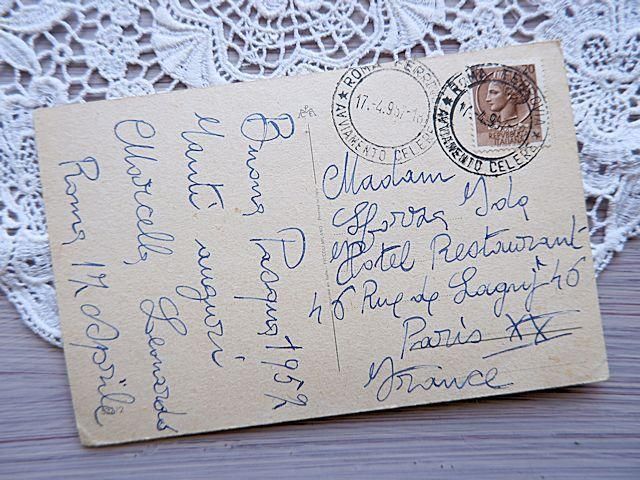 Buona Pasqua 1957
Tanti auguri
Marcella Leonardo
Roma 17 Aprile
ROMA FERROVIA
17.-4.957-18
AVVIAMENTO CELERE
ROMA FERROVIA
17.-4.957
AVVIAMENTO CELERE
REPVBBLICA
ITALIANA
Madam
Sforza Ida
Hotel Restaurant
46 Rue de Lagny 46
Paris XX
France